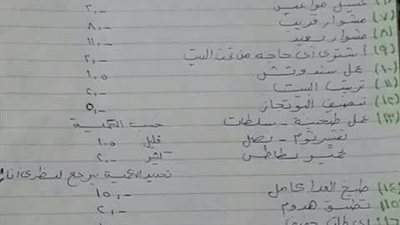 غسيل مواعين ٣.-
(٧) مشوار قريب ٨.-
(٨) مشوار بعيد ١١.-
(٩) اشترى أى حاجه من تحت البيت ٣.-
(١٠) عمل سندوتش ١.٥
(١١) ترتيب البيت ٢.-
(١٢) تنضيف البوتجاز ٥.-
(١٣) عمل طحينة - سلطات حسب الكمية
تقشير ثوم - بصل قليل ١.٥
تحمير بطاطس كثير ٢.-
تحديد الكمية يرجع لنظرى أنا
(١٤) طبخ الغدا كامل ١٥.-
(١٥) تطبيق هدوم ٢.-